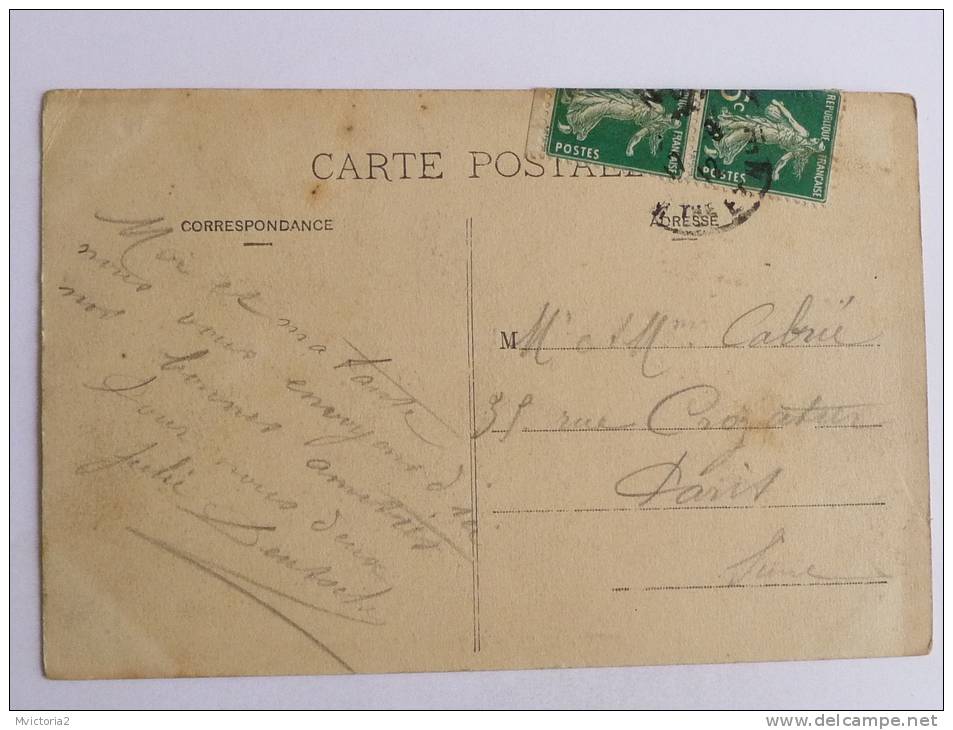 CARTE POSTALE
CORRESPONDANCE
Moi et ma tante
nous vous envoyons d'ici
nos bonnes amitiés
Pour nous deux
Julie
POSTES
FRANÇAISE
5c
REPUBLIQUE FRANÇAISE
POSTES
ADRESSE
M Mr et Mme Cabrié
35 rue Crozatier
Paris
Seine
Mvictoria2
www.delcampe.net